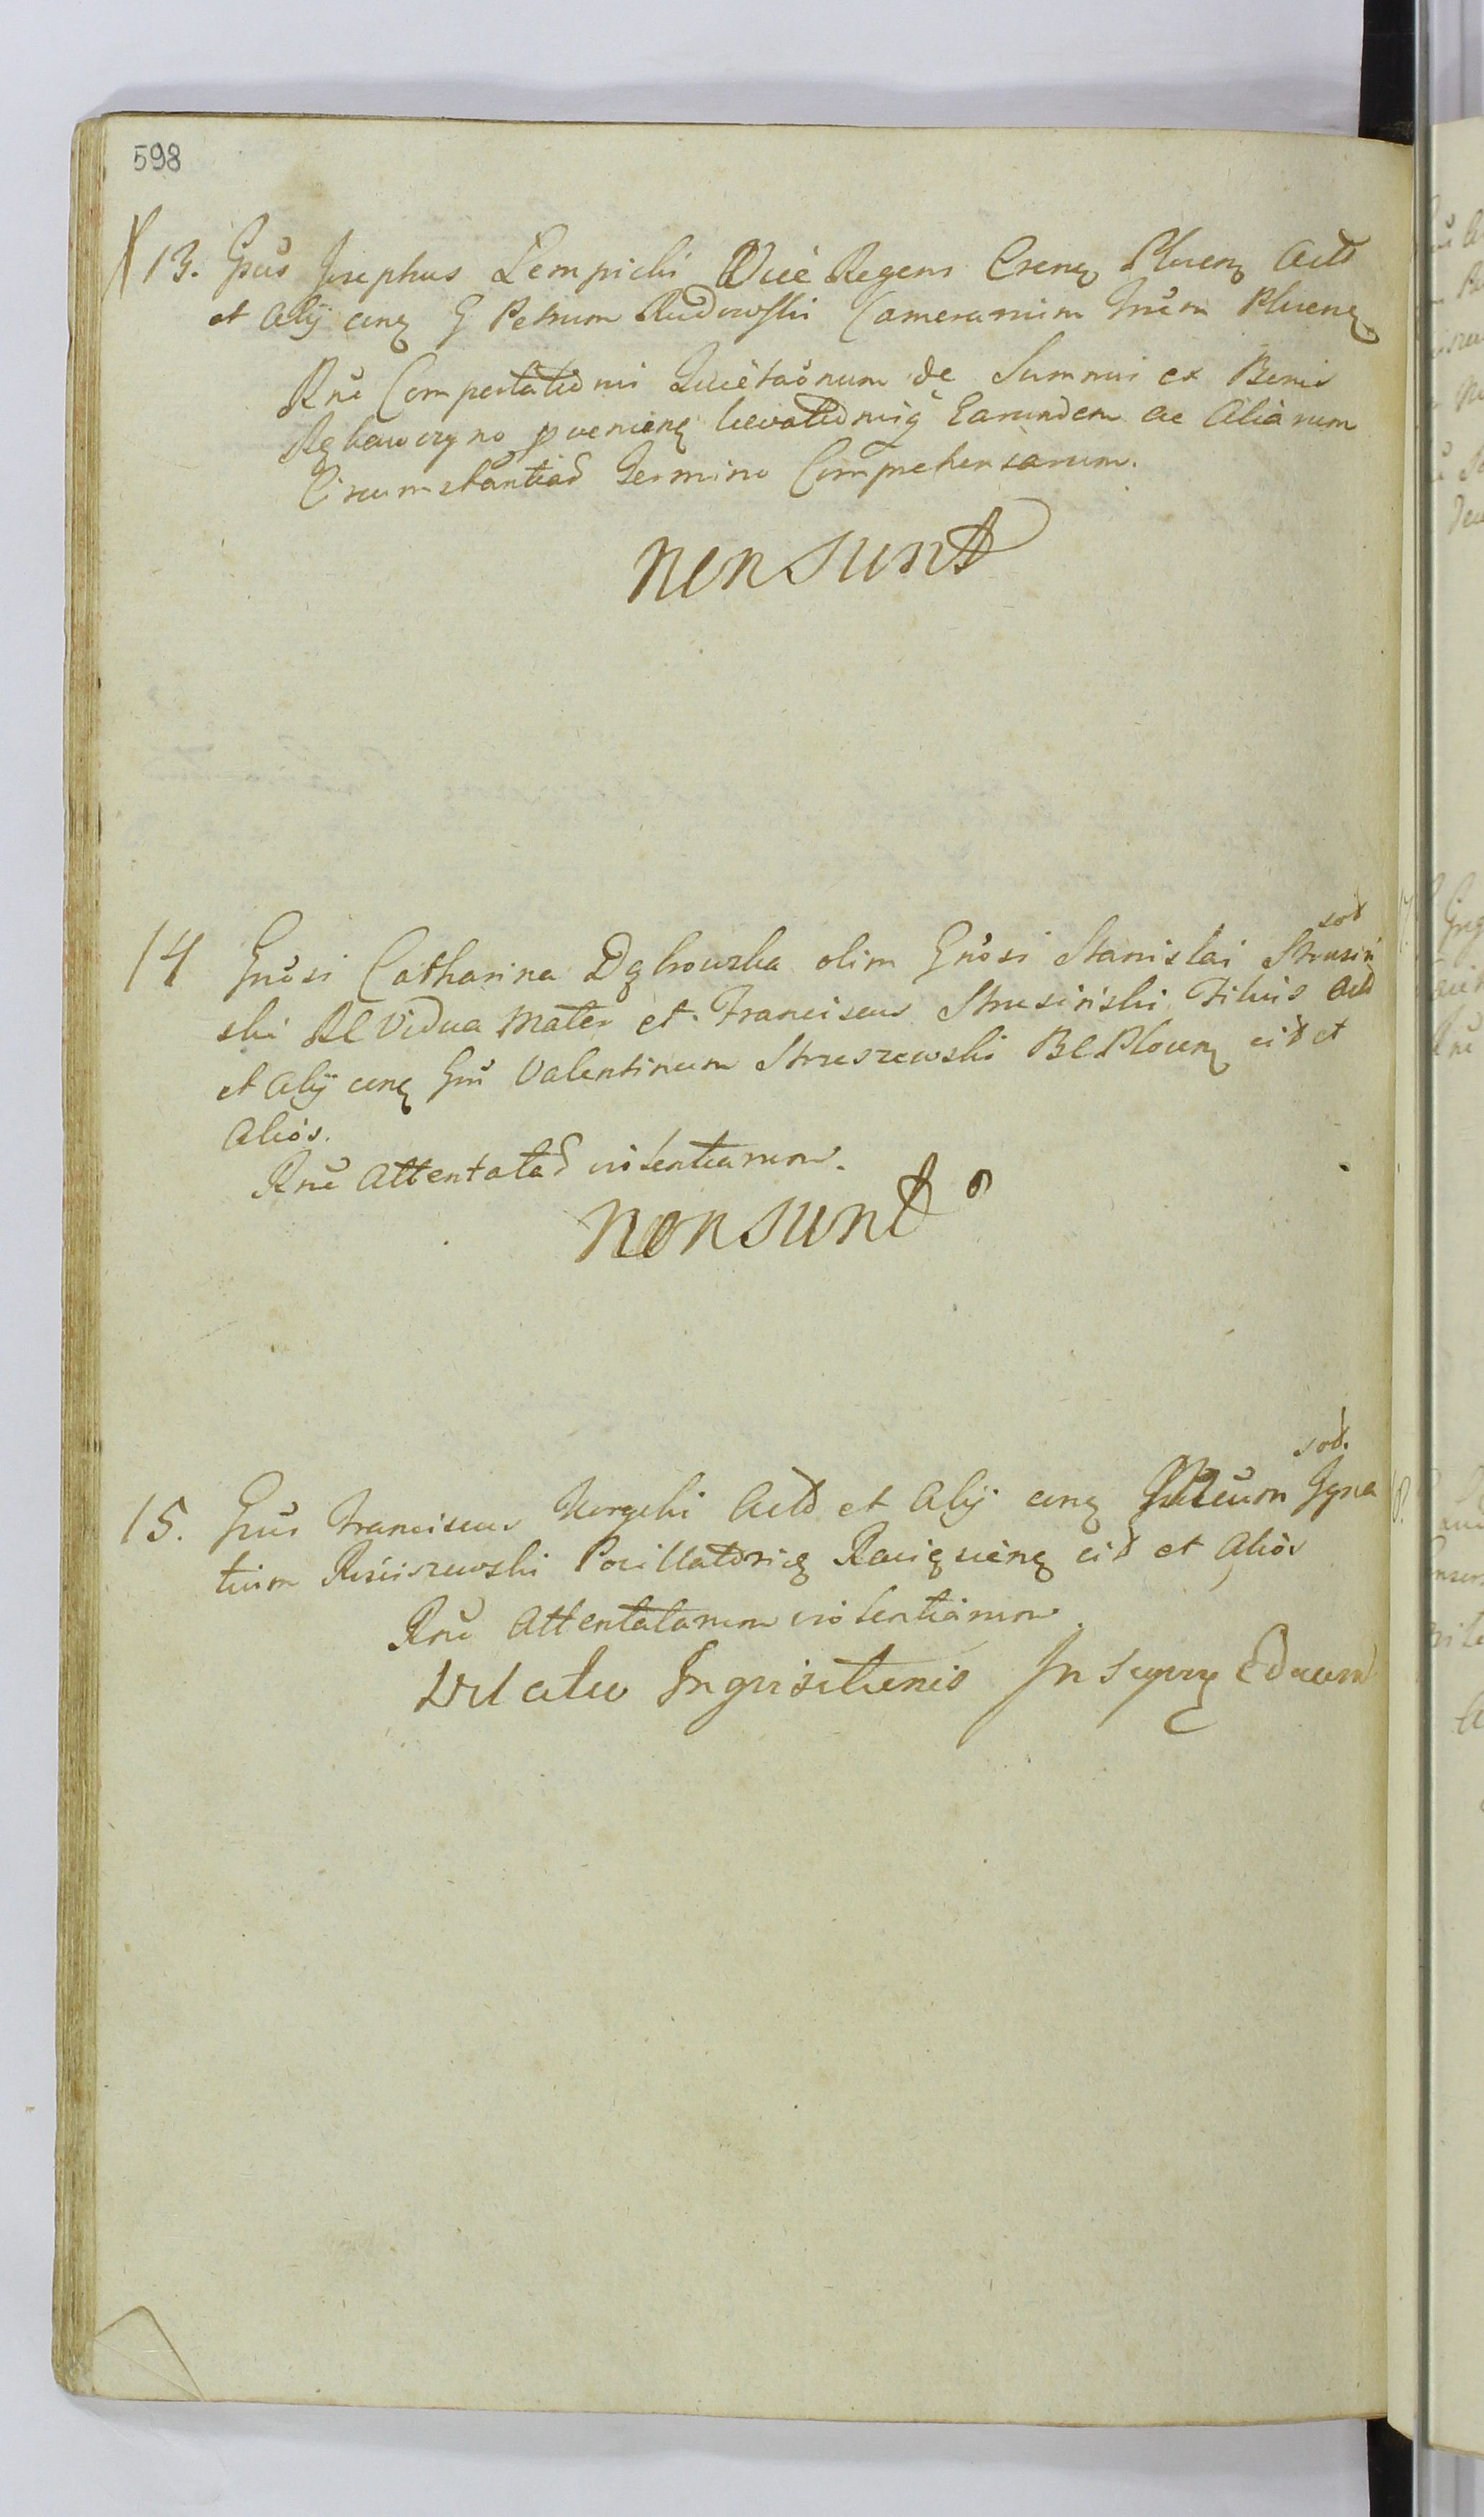 598
13. Gnus Josephus Lempicki Vice Regens Crens Plocens Actor
et alij cum G Petrum Rudowski Camerarium Trum Plocens
Rne Comportationis Quietaonum de Summis ex Bonis
Rębowczyno pvenien levationisq Earundem ac Aliarum
Circumstantiar Termino Comprehensarum.
non sunt
sot
14 Gnosi Catharina Dąbrowska olim Gnosi Stanislai Strusiń
ski Rl Vidua Mater et Franciscus Strusiński Filius Act
et alij cum Gnu Valentinum Struszewski BC Plocen cit et
Alios.
Rne Attentatar violentiarum.
non sunt
sot.
15. Gnus Franciscus Act et alij cum Igna
tium Rościszewski Pocillatorid cit et Alios
Rne Attentatarum violentiarum
Inquisitionis In